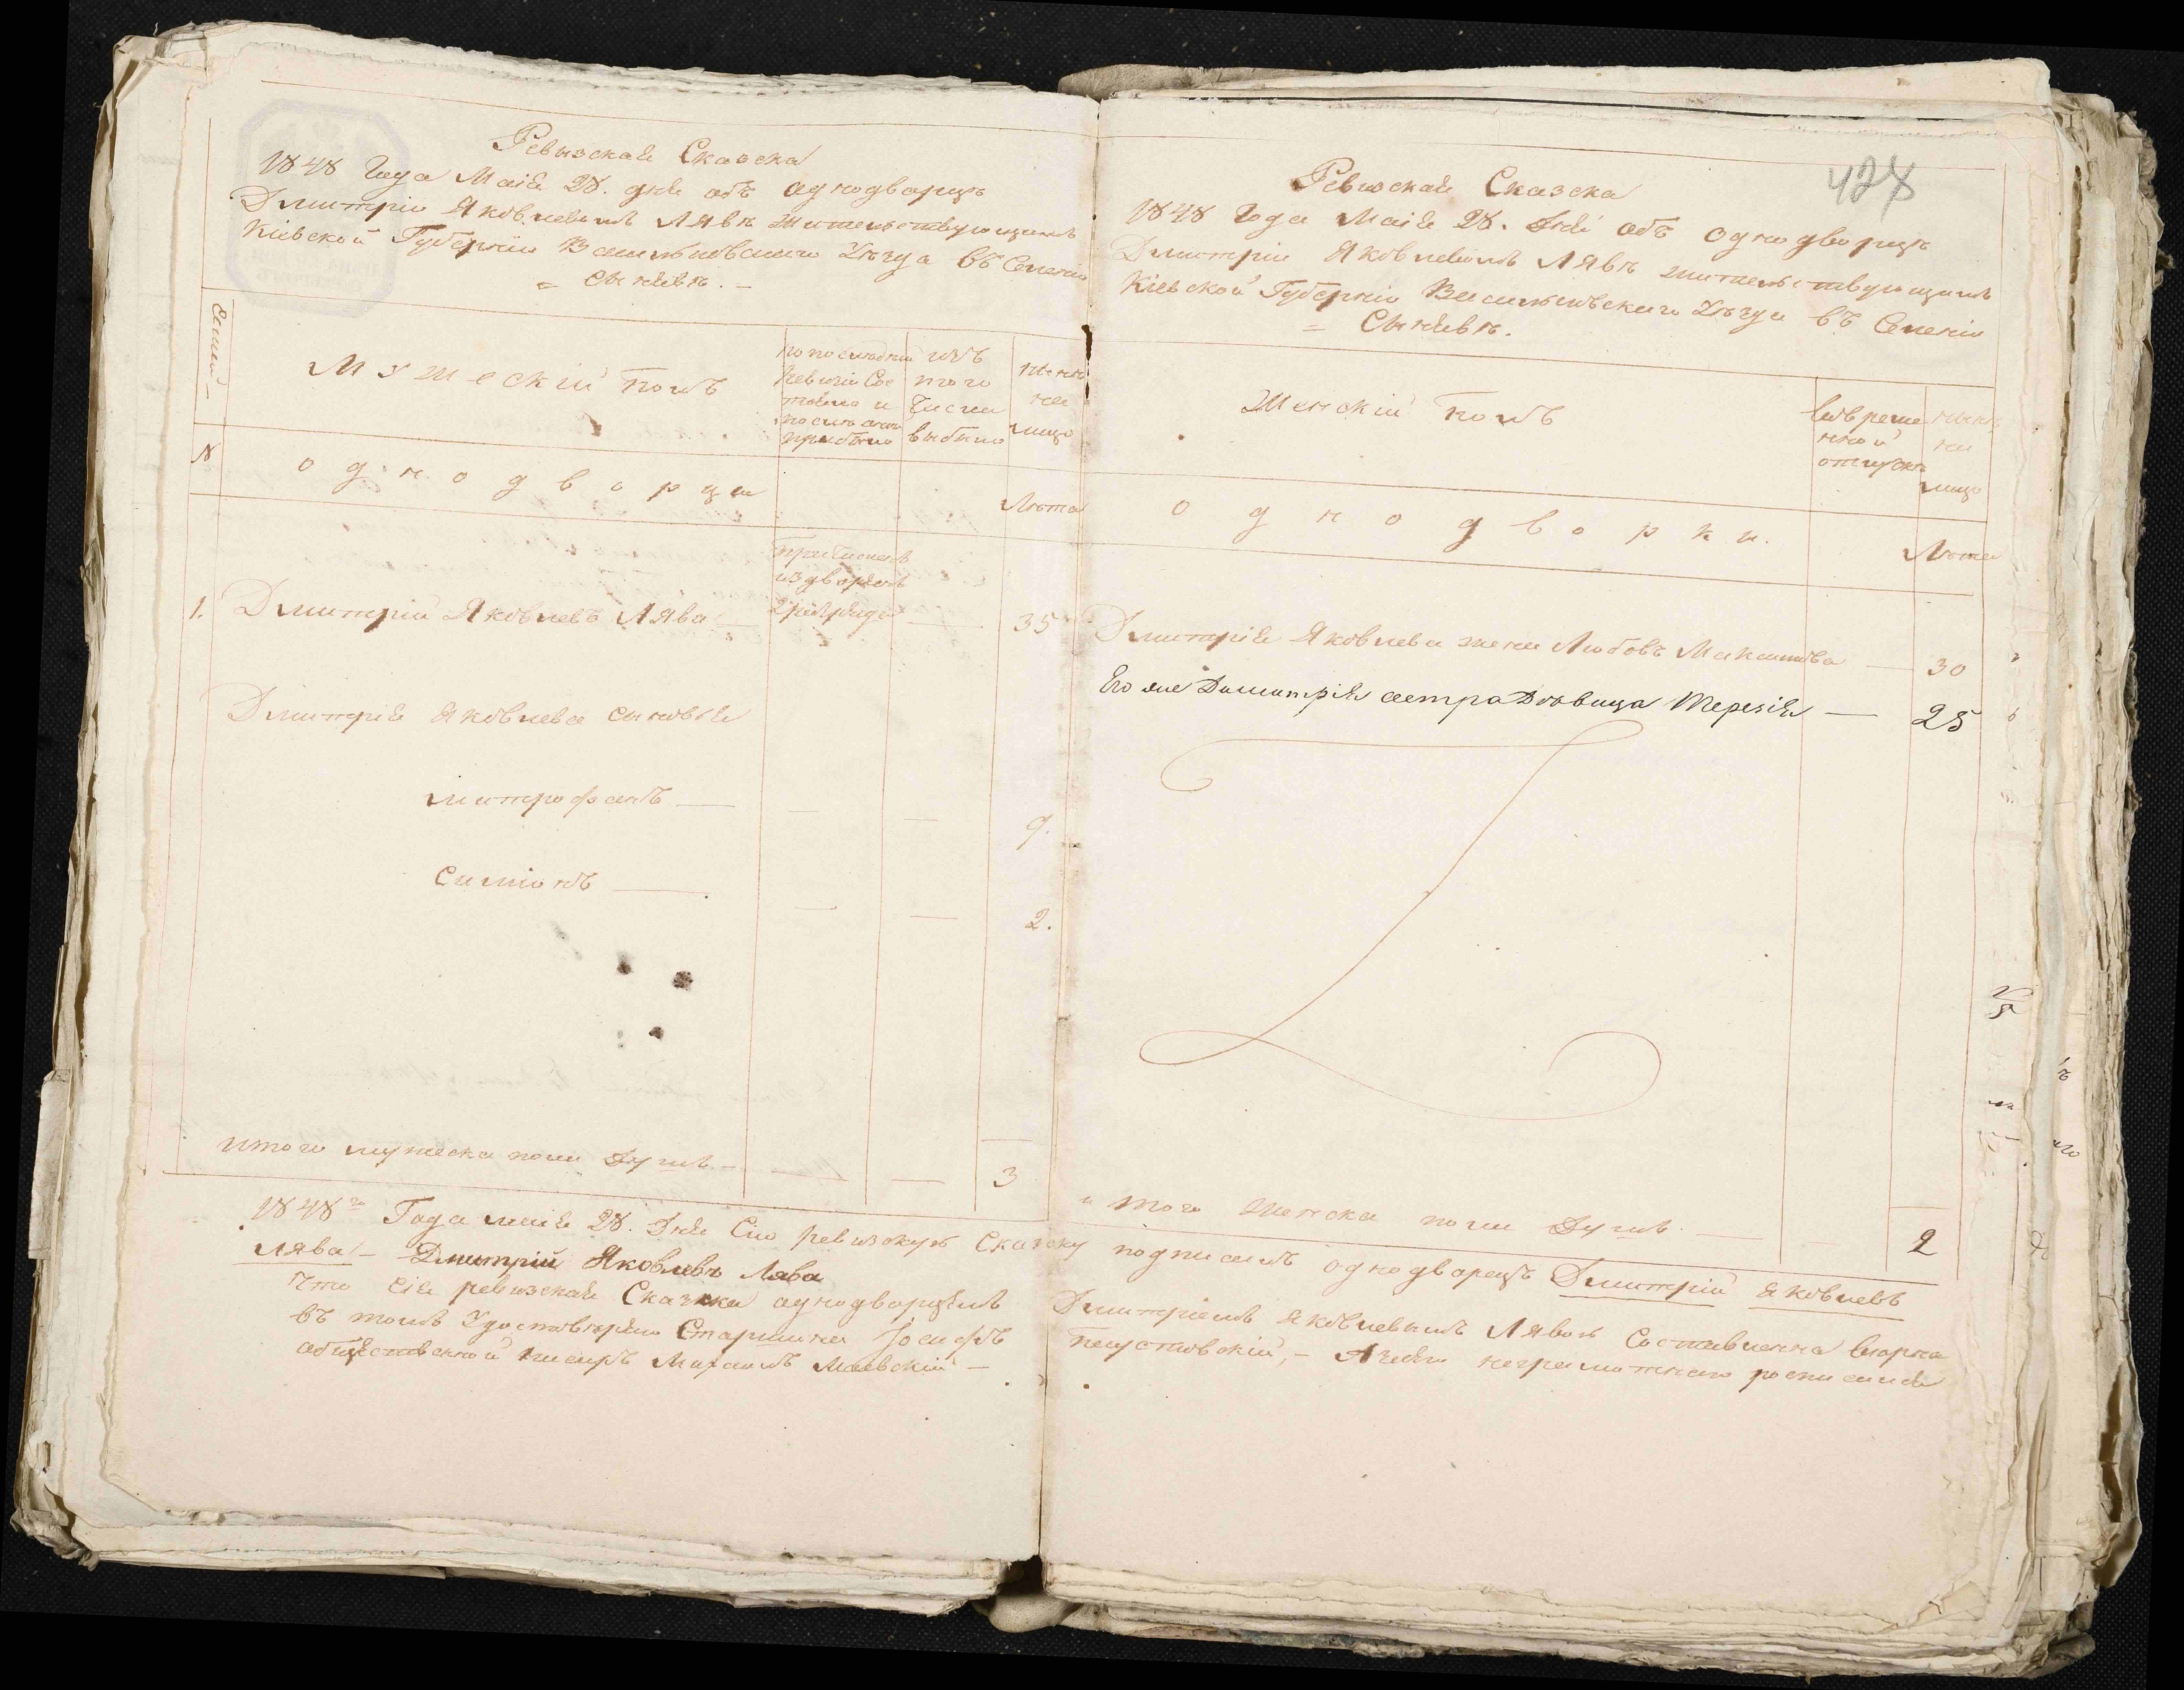 Ревызская Сказска
1848 Года Маія 28. дня объ однодворцѣ
Дмитріи Яковлевымъ Лявѣ жительствующимъ
Кіевской Губерніи Васильковскаго Уѣзда въ Селеніи
= Сынявѣ. -
Семьи
Мужескій полъ
по последній Ревизіи Состояло и после оной прибыло
изъ того числа выбыло
нынѣ на лицо
№
однодворцы
Лѣта
Причисленъ
из дворянъ
2 разряда
1. Дмитрій Яковлевъ Лява — 35
Дмитрія Яковлева сыновья
митрофанъ — 9.
Симіонъ — 2.
итого мужеска пола Душъ — 3
427
Ревизская Сказска
1848 Года Маія 28. Дня объ однодворцѣ
Дмитріи Яковлевымъ Лявѣ жительствующимъ
Кіевской Губерніи Васильковскаго Уѣзда въ Селеніи
= Сынявѣ.
Женскій полъ
во временной отлучкѣ
нынѣ на лицо
однодворки.
Лѣта
Дмитрія Яковлева жена Любовъ Макимова — 30
Его же Дымитрія сестра Дѣвица Терезія — 25
итого Женска пола Душъ 2
1848го Года маия 28. Дня Сию ревизскую Сказску подписалъ однодворецъ Дмитрій Яковлевъ
Лява - Дмитрій Яковлевъ Лява
Что сія ревизская Сказка однодворцемъ Дмитріемъ Яковлевымъ Лявою Составленна верна
въ томъ Удостовѣряю Старшина Іосифъ Пеустовскій, - А за его неграмотнаго росписался
общественной писарь Михаилъ Маевскій —